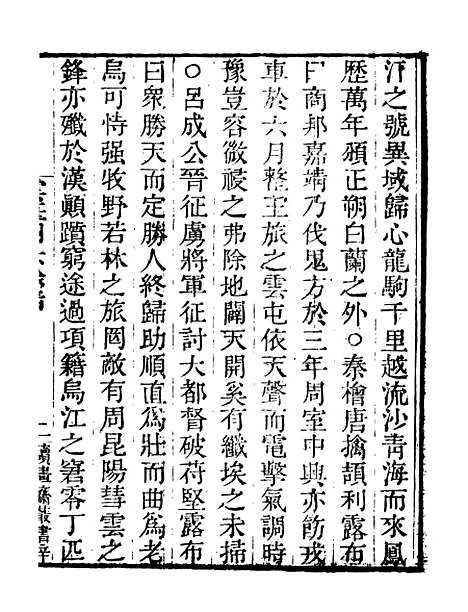 汗之號異域歸心龍駒千里越流沙青海而來鳳
歴萬年頒正朔白蘭之外○秦檜唐擒頡利露布
曰商邦嘉靖乃伐鬼方於三年周室中興亦飭戎
車於六月整王旅之雲屯依天聲而電擊氣調時
豫豈容微祲之弗除地闢天開奚有纖埃之未掃
○呂成公晉征虜將軍征討大都督破苻堅露布
曰衆勝天而定勝人終歸助順直爲壯而曲為老
烏可恃强牧野若林之旅罔敵有周昆陽彗雲之
鋒亦殲於漢顚躓窮途過項籍烏江之窘零丁匹
二
讀畫齋叢書辛